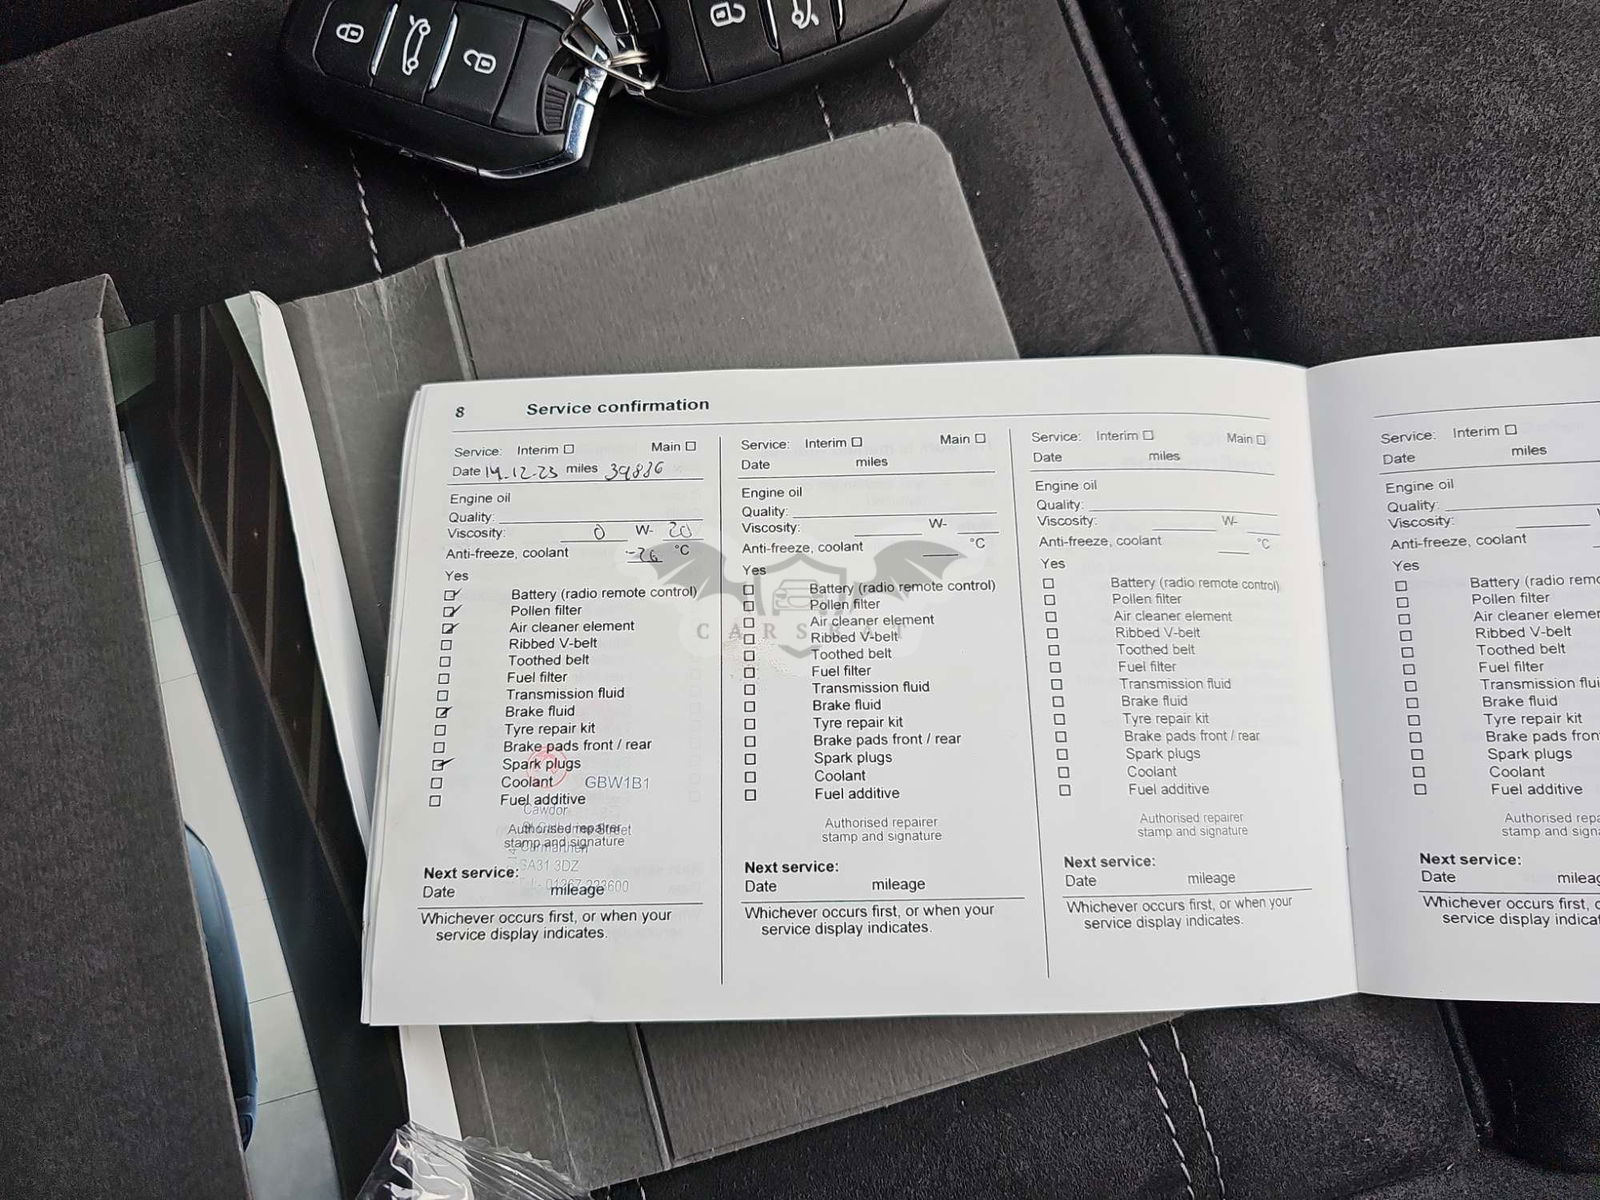 8 Service confirmation
Service: Interim ☐ Main ☐
Date 14-12-23 miles 39886
Engine oil
Quality:
Viscosity: 0 W- 20
Anti-freeze, coolant -26 °C
Yes
Battery (radio remote control)
Pollen filter
Air cleaner element
Ribbed V-belt
Toothed belt
Fuel filter
Transmission fluid
Brake fluid
Tyre repair kit
Brake pads front / rear
Spark plugs
Coolant GBW1B1
Fuel additive
Cawdor
Authorised repairer
stamp and signature
Carmarthen
SA31 3DZ
Next service:
Date mileage
Whichever occurs first, or when your
service display indicates.
Service: Interim ☐ Main ☐
Date miles
Engine oil
Quality:
Viscosity: W-
Anti-freeze, coolant °C
Yes
Battery (radio remote control)
Pollen filter
Air cleaner element
Ribbed V-belt
Toothed belt
Fuel filter
Transmission fluid
Brake fluid
Tyre repair kit
Brake pads front / rear
Spark plugs
Coolant
Fuel additive
Authorised repairer
stamp and signature
Next service:
Date mileage
Whichever occurs first, or when your
service display indicates.
Service: Interim ☐ Main ☐
Date miles
Engine oil
Quality:
Viscosity: W-
Anti-freeze, coolant °C
Yes
Battery (radio remote control)
Pollen filter
Air cleaner element
Ribbed V-belt
Toothed belt
Fuel filter
Transmission fluid
Brake fluid
Tyre repair kit
Brake pads front / rear
Spark plugs
Coolant
Fuel additive
Authorised repairer
stamp and signature
Next service:
Date mileage
Whichever occurs first, or when your
service display indicates.
Service: Interim ☐
Date miles
Engine oil
Quality:
Viscosity:
Anti-freeze, coolant
Yes
Battery (radio remo
Pollen filter
Air cleaner elemen
Ribbed V-belt
Toothed belt
Fuel filter
Transmission flui
Brake fluid
Tyre repair kit
Brake pads fron
Spark plugs
Coolant
Fuel additive
Authorised repa
stamp and signa
Next service:
Date mileag
Whichever occurs first, or
service display indicat